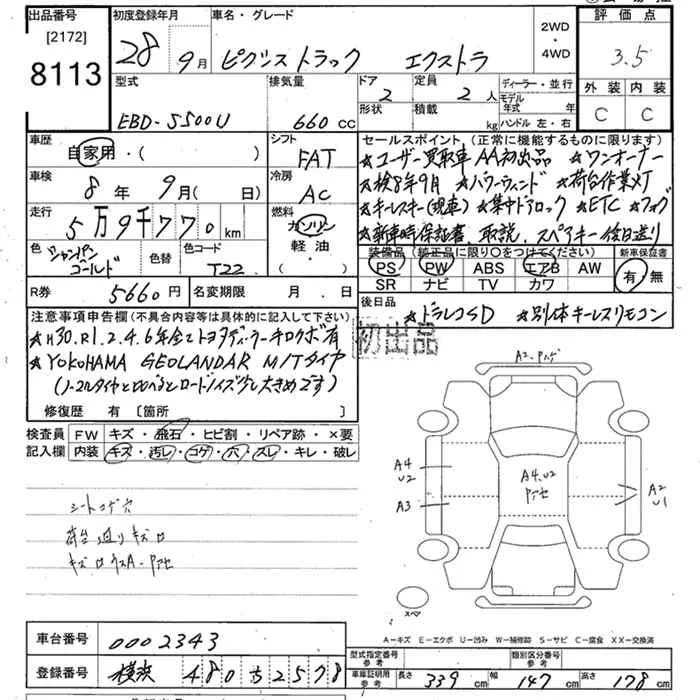 出品番号
[2172]
8113
初度登録年月
28年 9月
車名・グレード
ピクシストラック エクストラ
2WD
・
4WD
評価点
3.5
外装 内装
C C
型式
EBD-S500U
排気量
660 cc
ドア
2
定員
2人
形状
積載
kg
ディーラー・並行
モデル年式 年
ハンドル 左・右
車歴
自家用・( )
シフト
FAT
車検
8年 9月( 日)
冷房
AC
走行
5万9千770 km
燃料
ガソリン
軽油・
色
シャンパンゴールド
色替
色コード
T22
R券
5660円
名変期限 月 日
セールスポイント (正常に機能するものに限ります)
★ユーザー買取車AA初出品 ★ワンオーナー
★検8年9月 ★パワーウィンド ★荷台作業灯
★キーレスキー(現車) ★集中ドアロック ★ETC ★フォグ
★新車時保証書 取説、スペアキー後日送り
装備品 (純正品に限り○をつけてください)
PS PW ABS エアB AW
SR ナビ TV カワ
新車保証書
有 無
後日品
★ドラレコSD ★別体キーレスリモコン
注意事項申告欄(不具合内容等は具体的に記入して下さい)
★H30.R1.2.4.6年全てトヨタディーラーキロクボ有
★YOKOHAMA GEOLANDAR M/Tタイヤ
(ノーマルタイヤと比べるとロードノイズ少し大きめです)
修復歴 有 [箇所 ]
初出品
検査員記入欄
FW キズ・飛石・ヒビ割・リペア跡・×要
内装 キズ・汚レ・コゲ・穴・スレ・キレ・破レ
シートコゲ穴
荷台廻りキズロ
A2.Pアゲ
A4
U2
A3
A4.U2
Pアセ
A2
U1
スペア
A－キズ E－エクボ U－凹み W－補修跡 S－サビ C－腐食 XX－交換済
車台番号
0002343
登録番号
横浜 480 ち 2578
型式指定番号
参考
類別区分番号
参考
車庫証明用
参考
長さ 339 cm 幅 147 cm 高さ 178 cm